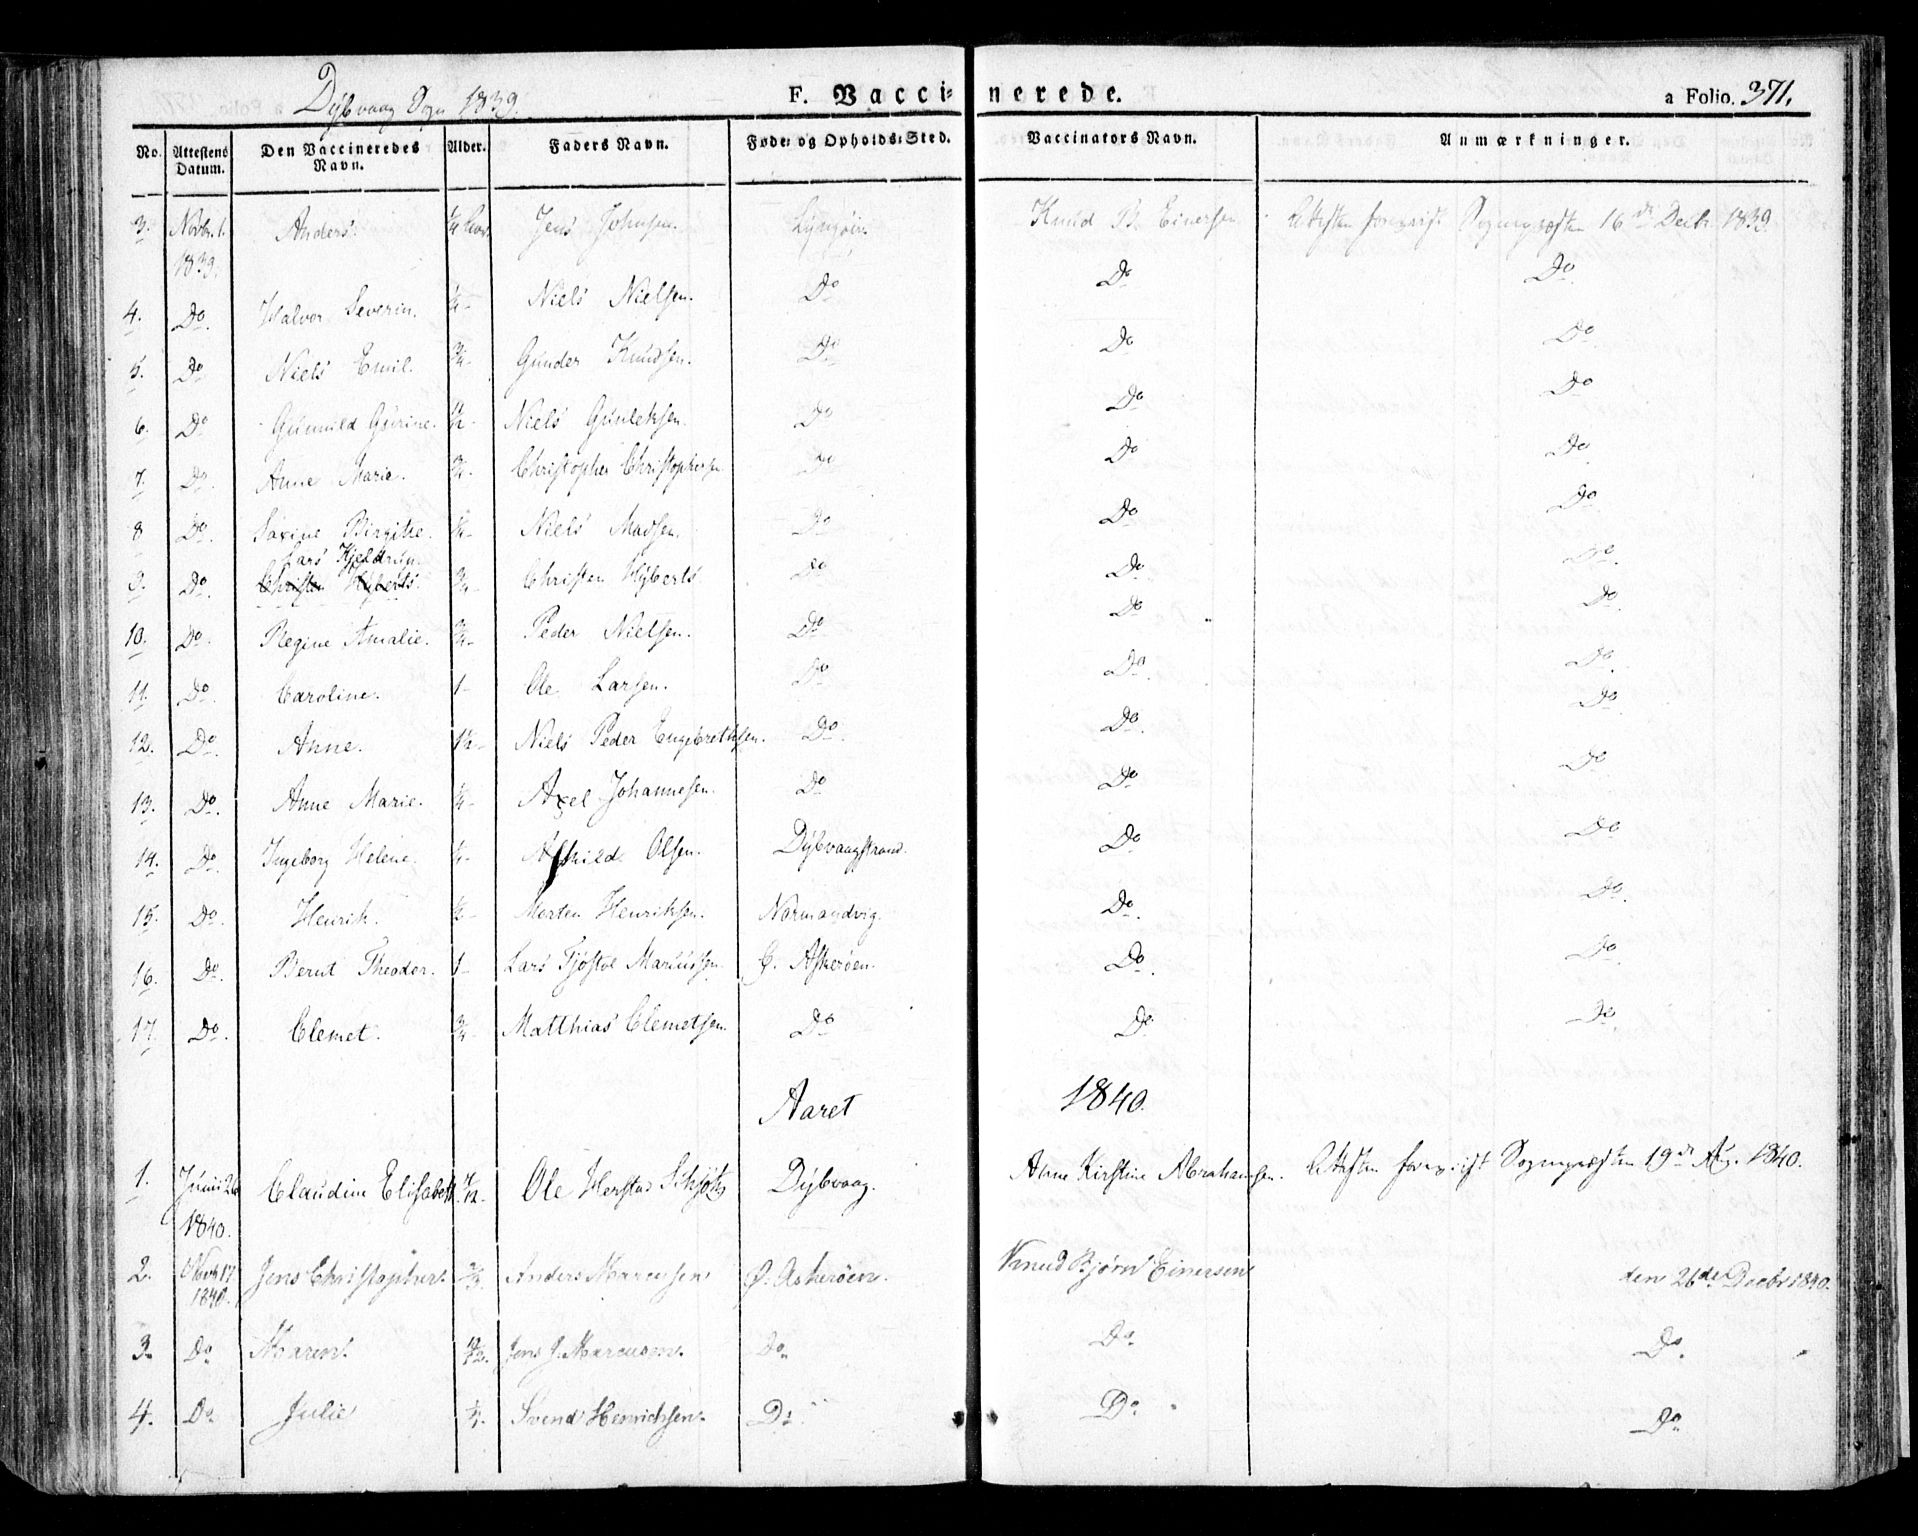 Dybvaag Sogn 1839. F. Vaccinerede. a Folio. 371.
No. Attestens Datum. Den Vaccineredes Navn. Alder. Faders Navn. Føde- og Opholds-Sted. Vaccinators Navn. Anmærkninger.
3. Novbr. 1. 1839. Anders. Jens Johnsen. Lyngöer. Knud B. Einersen Attesten foreviist Sognepræsten 16de Decbr. 1839.
4. Do. Halvor Severin. Niels Nielsen. Do Do Do.
5. Do Niels Emil. 3/4. Gunder Knudsen. Do Do Do.
6. Do Gunnild Gurine. Niels Gunleksen. Do Do Do
7. Do. Anne Marie. Christopher Christophersen Do Do Do
8 Do. Saxine Birgitte. Niels Madsen. Do Do Do
9. Do. Lars Kjeldrun. Christen Hyberts. 3/4. Christen Hyberts Do Do Do
10. Do. Regine Amalie. Peder Nielsen. Do Do Do
11. Do. Caroline. 1- Ole Larsen. Do Do. Do
12. Do Anne. Niels Peder Engebrethsen. Do. Do. Do
13. Do. Anne Marie. Axel Johannesen. Do Do Do
14. Do. Ingeborg Helene. Askild Olsen. Dybvaagstrand. Do Do
15. Do. Henrik. Morten Henriksen. Normandvig. Do. Do.
16. Do. Bernt Theodor. 1- Lars Tjöstol Marcussen. Ö. Askeröen. Do. Do.
17. Do. Clemet. 3/4. Matthias Clemetsen. Do Do Do
Aaret 1840.
1. Junii 26 1840. Claudine Elisabeth Ole Herstad Schjötz Dybvaag. Anne Kirstine Abrahamsen. Attesten foreviist Sognepræsten 19de Aug. 1840.
2. Novb 17. 1840. Jens Christopher. Anders Marcusen Ø. Askeröen. Knud Bjørn Einersen den 26de Decbr 1840.
3. Do Maren. Jens J. Marcusen. Do. Do. Do.
4. Do Julie Svend Henrichsen. Do. Do. Do